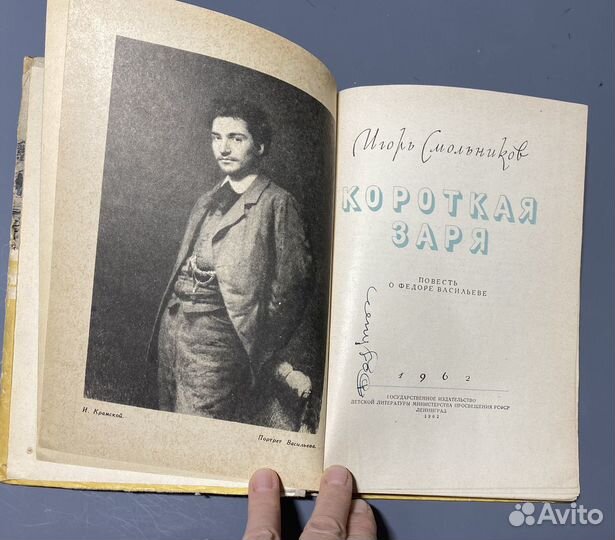 И. Крамской.
Портрет Васильева.
Игорь Смольников
КОРОТКАЯ
ЗАРЯ
ПОВЕСТЬ
О ФЕДОРЕ ВАСИЛЬЕВЕ
1962
ГОСУДАРСТВЕННОЕ ИЗДАТЕЛЬСТВО
ДЕТСКОЙ ЛИТЕРАТУРЫ МИНИСТЕРСТВА ПРОСВЕЩЕНИЯ РСФСР
ЛЕНИНГРАД
1962
Avito